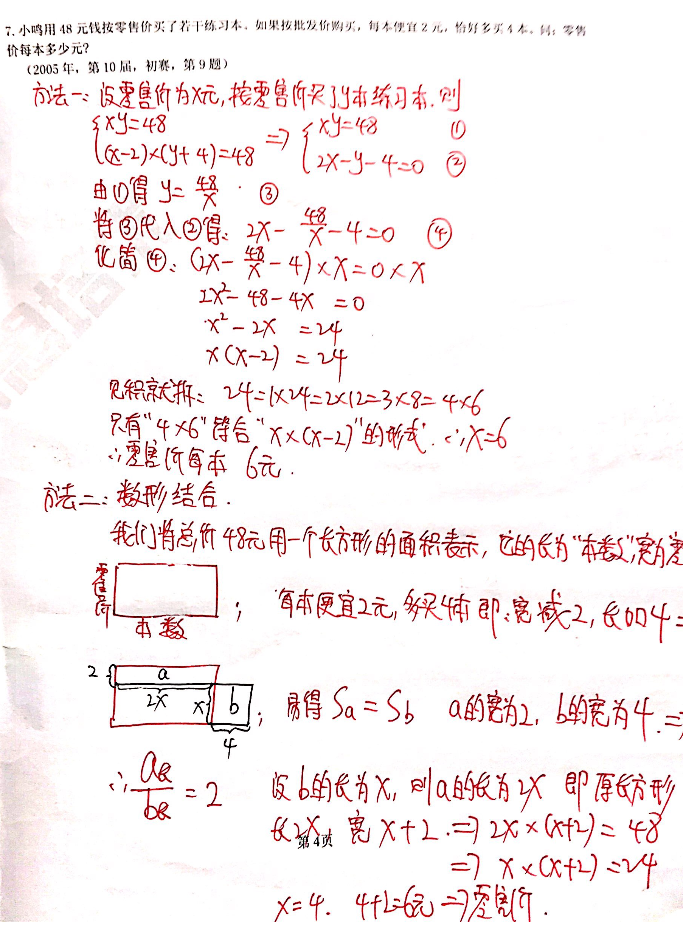 7. 小鸣用 48 元钱按零售价买了若干练习本。如果按批发价购买，每本便宜 2 元，恰好多买 4 本。问：零售
价每本多少元？
（2005 年，第 10 届，初赛，第 9 题）
方法一：设零售价为X元，按零售价买了y本练习本．则
{xy=48 => {xy=48 ①
{(x-2)×(y+4)=48 {2x-y-4=0 ②
由①得 y=48/x . ③
将③代入②得： 2x-48/x-4=0 ④
化简④： (2x-48/x-4)×x=0×x
2x²-48-4x =0
x²-2x =24
x(x-2) =24
见积就拆： 24=1×24=2×12=3×8=4×6
只有"4×6"符合"x×(x-2)"的形式．∴x=6
∴零售价每本 6元．
方法二：数形结合．
我们将总价48元用一个长方形的面积表示，它的长为"本数"，宽为零
零售价
本数
； 每本便宜2元，多买4本 即：宽减2，长加4=
2 a
2x x b
4
； 易得 Sa=Sb a的宽为2，b的宽为4．=>
∴ a长/b长 = 2 设b的长为x，则a的长为2x 即原长方形
长2x，宽 x+2．=> 2x×(x+2)=48
第 4 页
=> x×(x+2)=24
x=4． 4+2=6元 => 零售价．